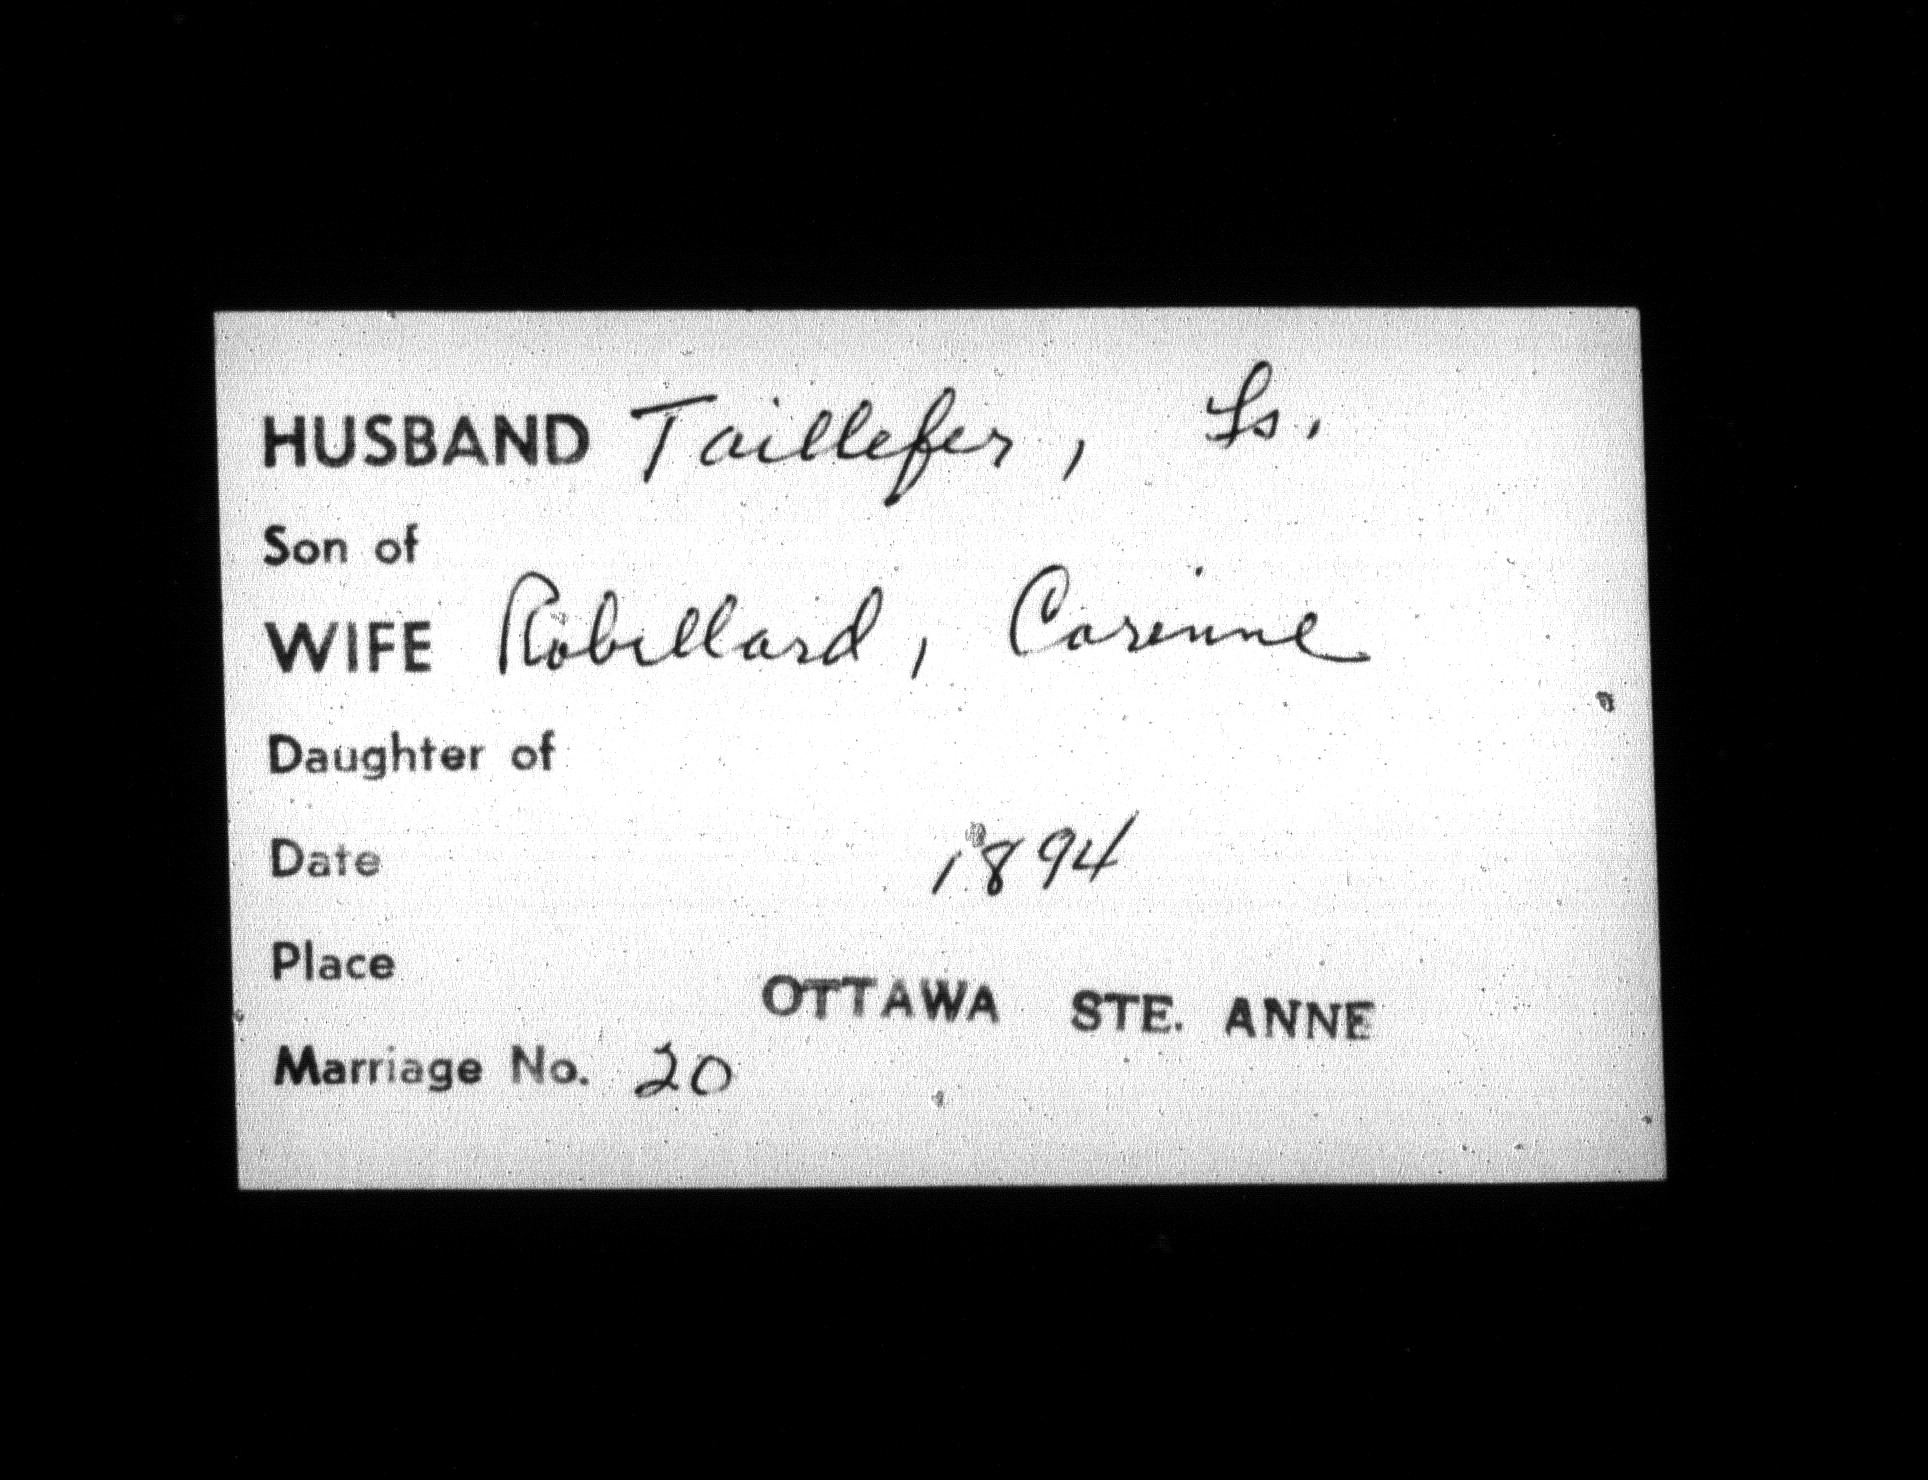 HUSBAND Taillefer, Ls.
Son of
WIFE Robillard, Corinne
Daughter of
Date 1894
Place OTTAWA STE. ANNE
Marriage No. 20